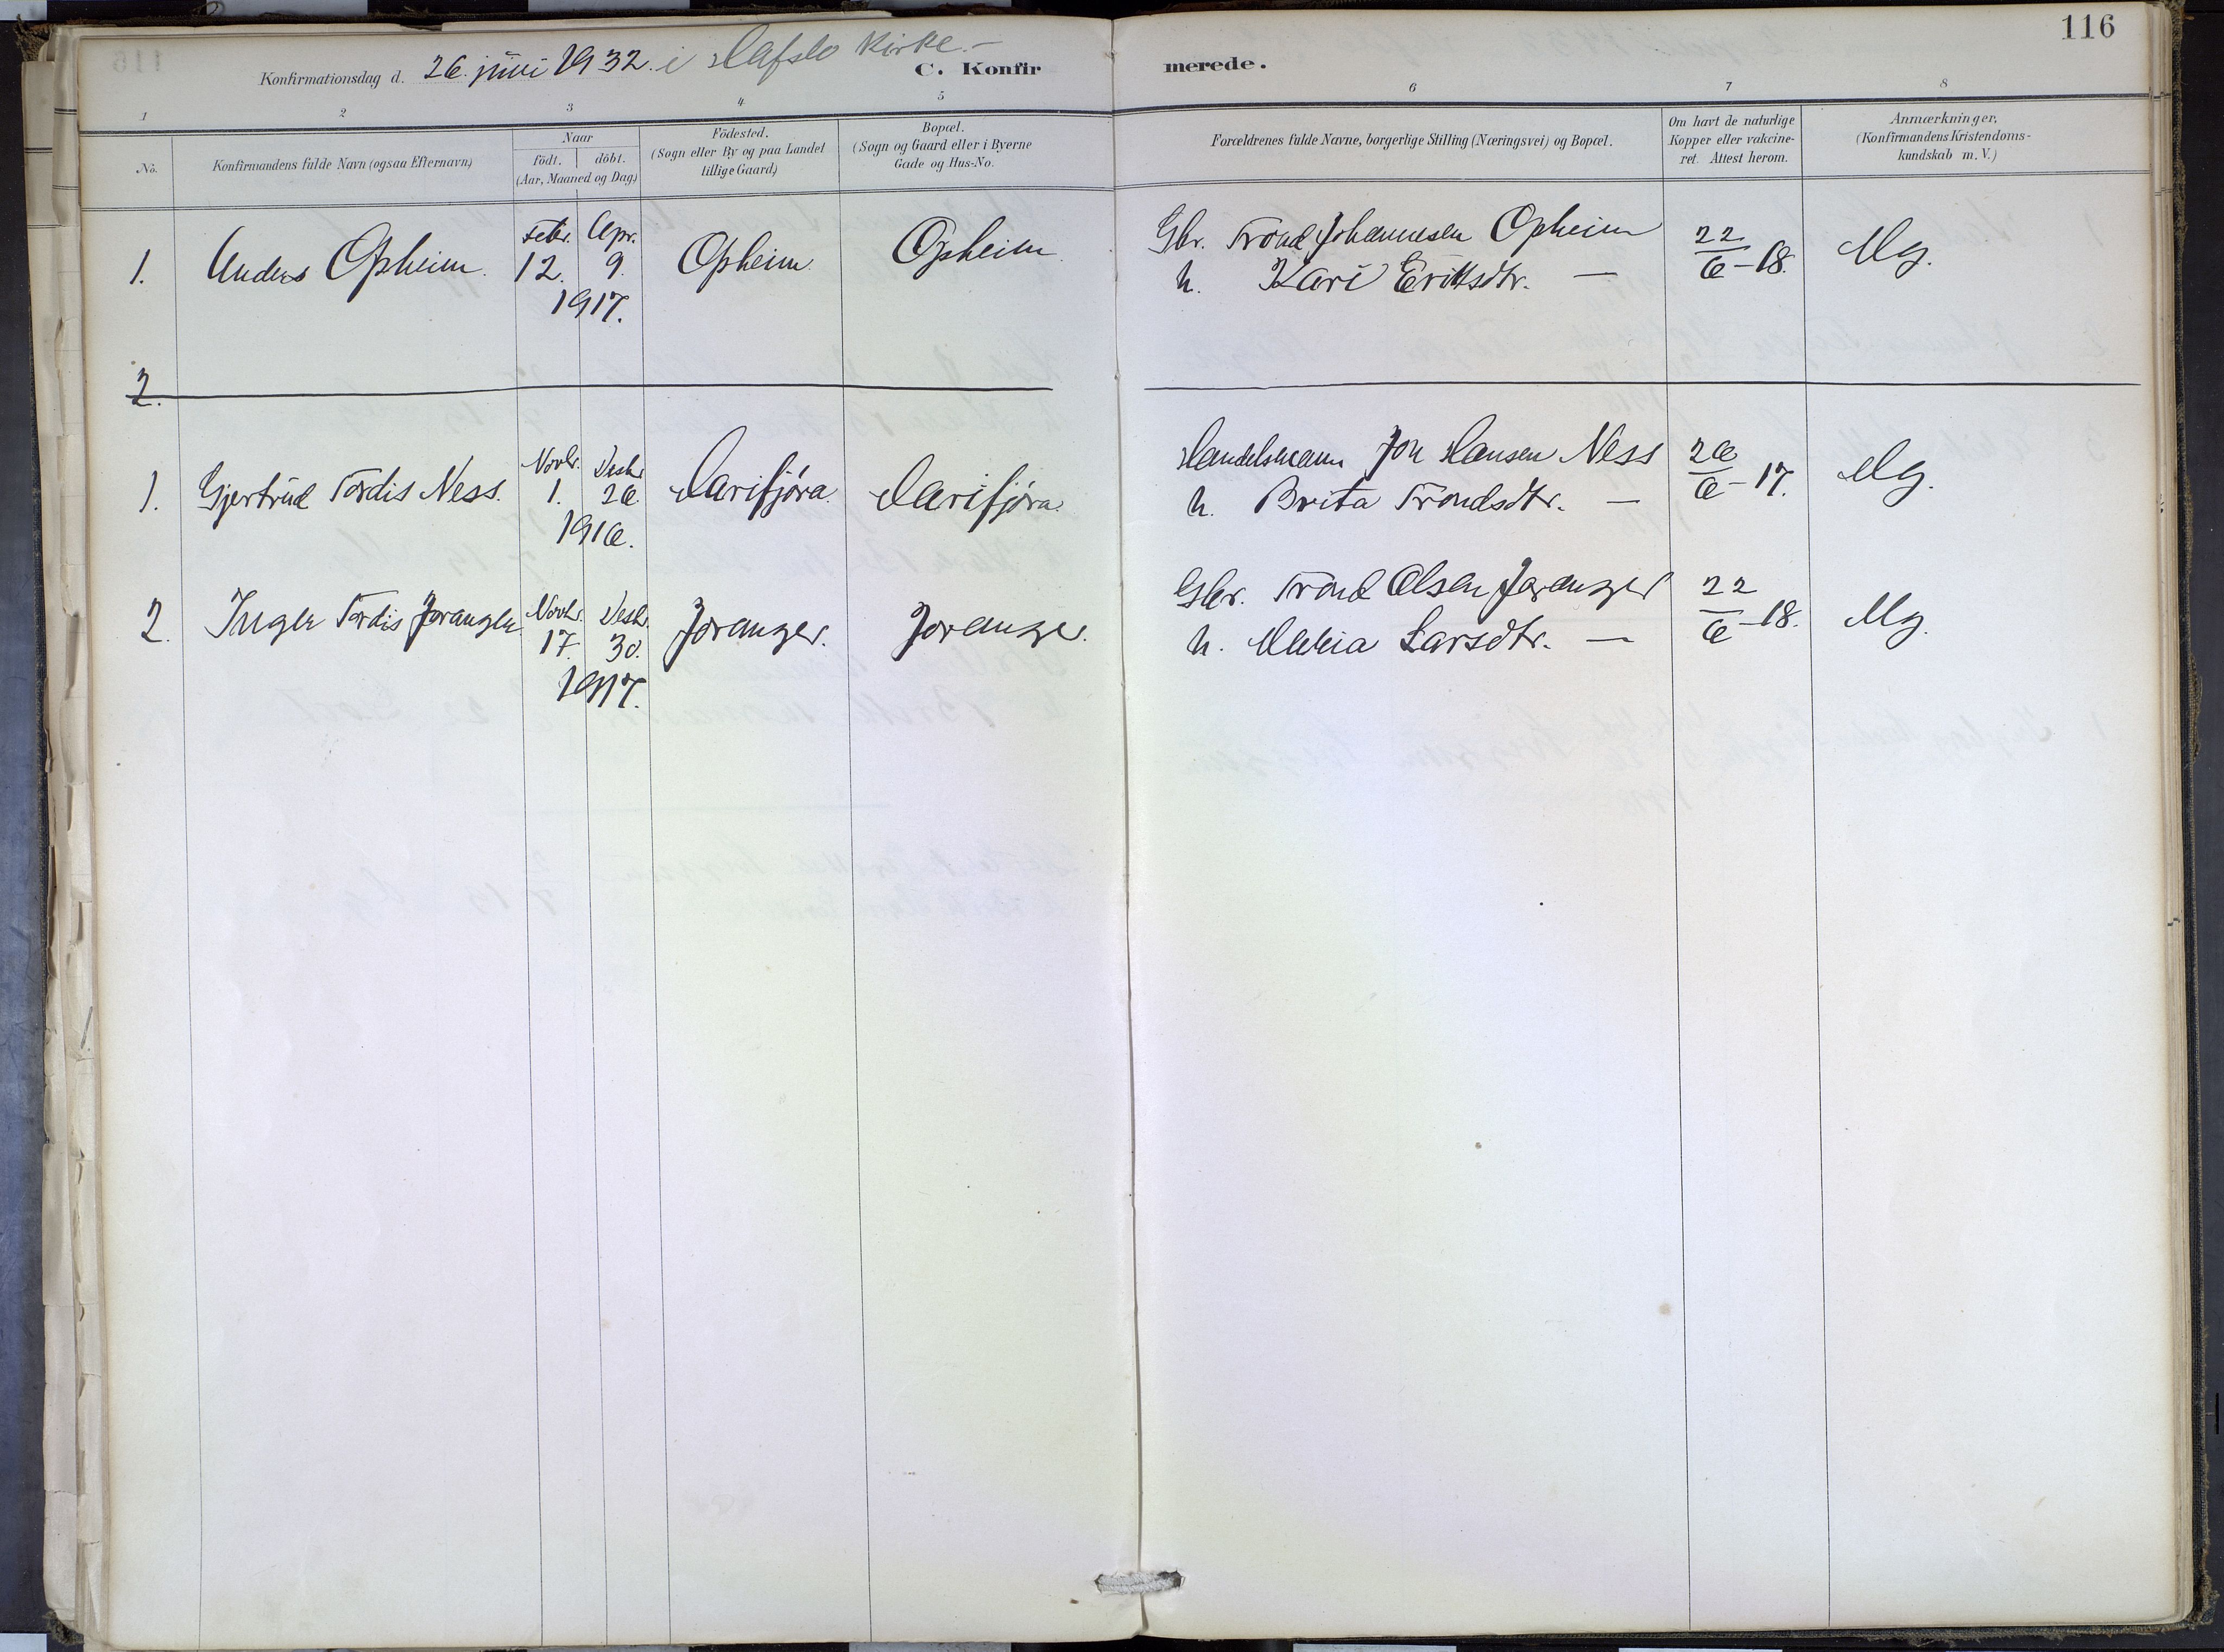 116
Konfirmationsdag d. 26. juni 1932. i Hafslo Kirke.-
C. Konfirmerede.
1 2 3 4 5 6 7 8
No. Konfirmandens fulde Navn (ogsaa Efternavn) Naar födt. döbt. (Aar, Maaned og Dag) Födested. (Sogn eller By og paa Landet tillige Gaard) Bopæl. (Sogn og Gaard eller i Byerne Gade og Hus-No. Forældrenes fulde Navne, borgerlige Stilling (Næringsvei) og Bopæl. Om havt de naturlige Kopper eller vakcineret. Attest herom. Anmærkninger, (Konfirmandens Kristendomskundskab m. V.)
1. Anders Opheim. Febr. 12. Apr. 9. 1917. Opheim. Opheim. Gbr. Trond Johannesen Opheim 22/6-18. Mg.
h. Kari Eriksdtr. —
2.
1. Gjertrud Tordis Ness. Novbr. 1. Desbr. 26. 1916. Marifjøra. Marifjøra. Handelsmann Jon Hansen Ness 26/6-17. Mg.
h. Brita Trondsdtr. —
2. Inger Tordis Joranger. Novbr. 17. Desbr. 30. 1917. Joranger. Joranger. Gbr. Trond Olsen Joranger 22/6-18. Mg.
h. Maria Larsdtr. —